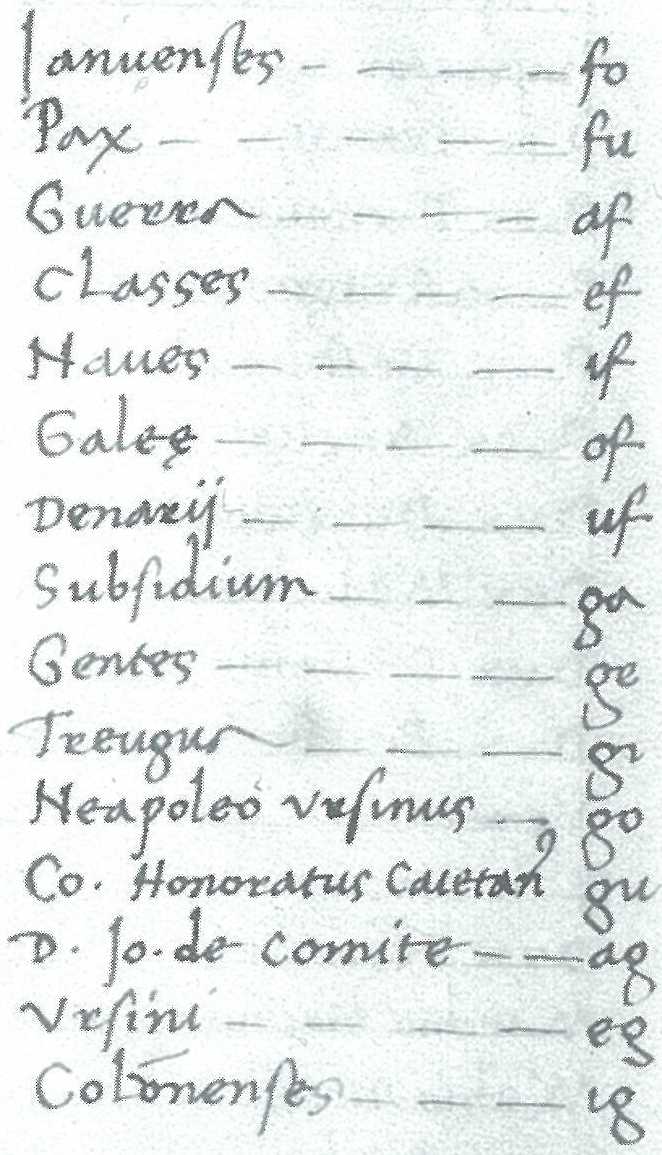 Januenses — — — — fo
Pax — — — — — fu
Guerra — — — — af
Classes — — — — ef
Naues — — — — if
Galeę — — — — of
Denarij — — — — uf
Subsidium — — — ga
Gentes — — — — ge
Treugua — — — gi
Neapoleo Vrsinus — go
Co. Honoratus Caietanꝰ gu
D. Jo. de Comite — — ag
Vrsini — — — — eg
Colōnenses — — — ig